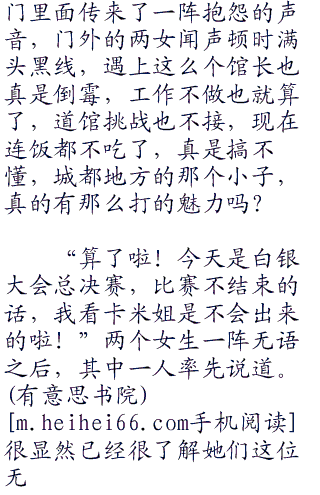 门里面传来了一阵抱怨的声
音，门外的两女闻声顿时满
头黑线，遇上这么个馆长也
真是倒霉，工作不做也就算
了，道馆挑战也不接，现在
连饭都不吃了，真是搞不
懂，城都地方的那个小子，
真的有那么打的魅力吗？
“算了啦！今天是白银
大会总决赛，比赛不结束的
话，我看卡米姐是不会出来
的啦！”两个女生一阵无语
之后，其中一人率先说道。
(有意思书院)
[m.heihei66.com手机阅读]
很显然已经很了解她们这位
无